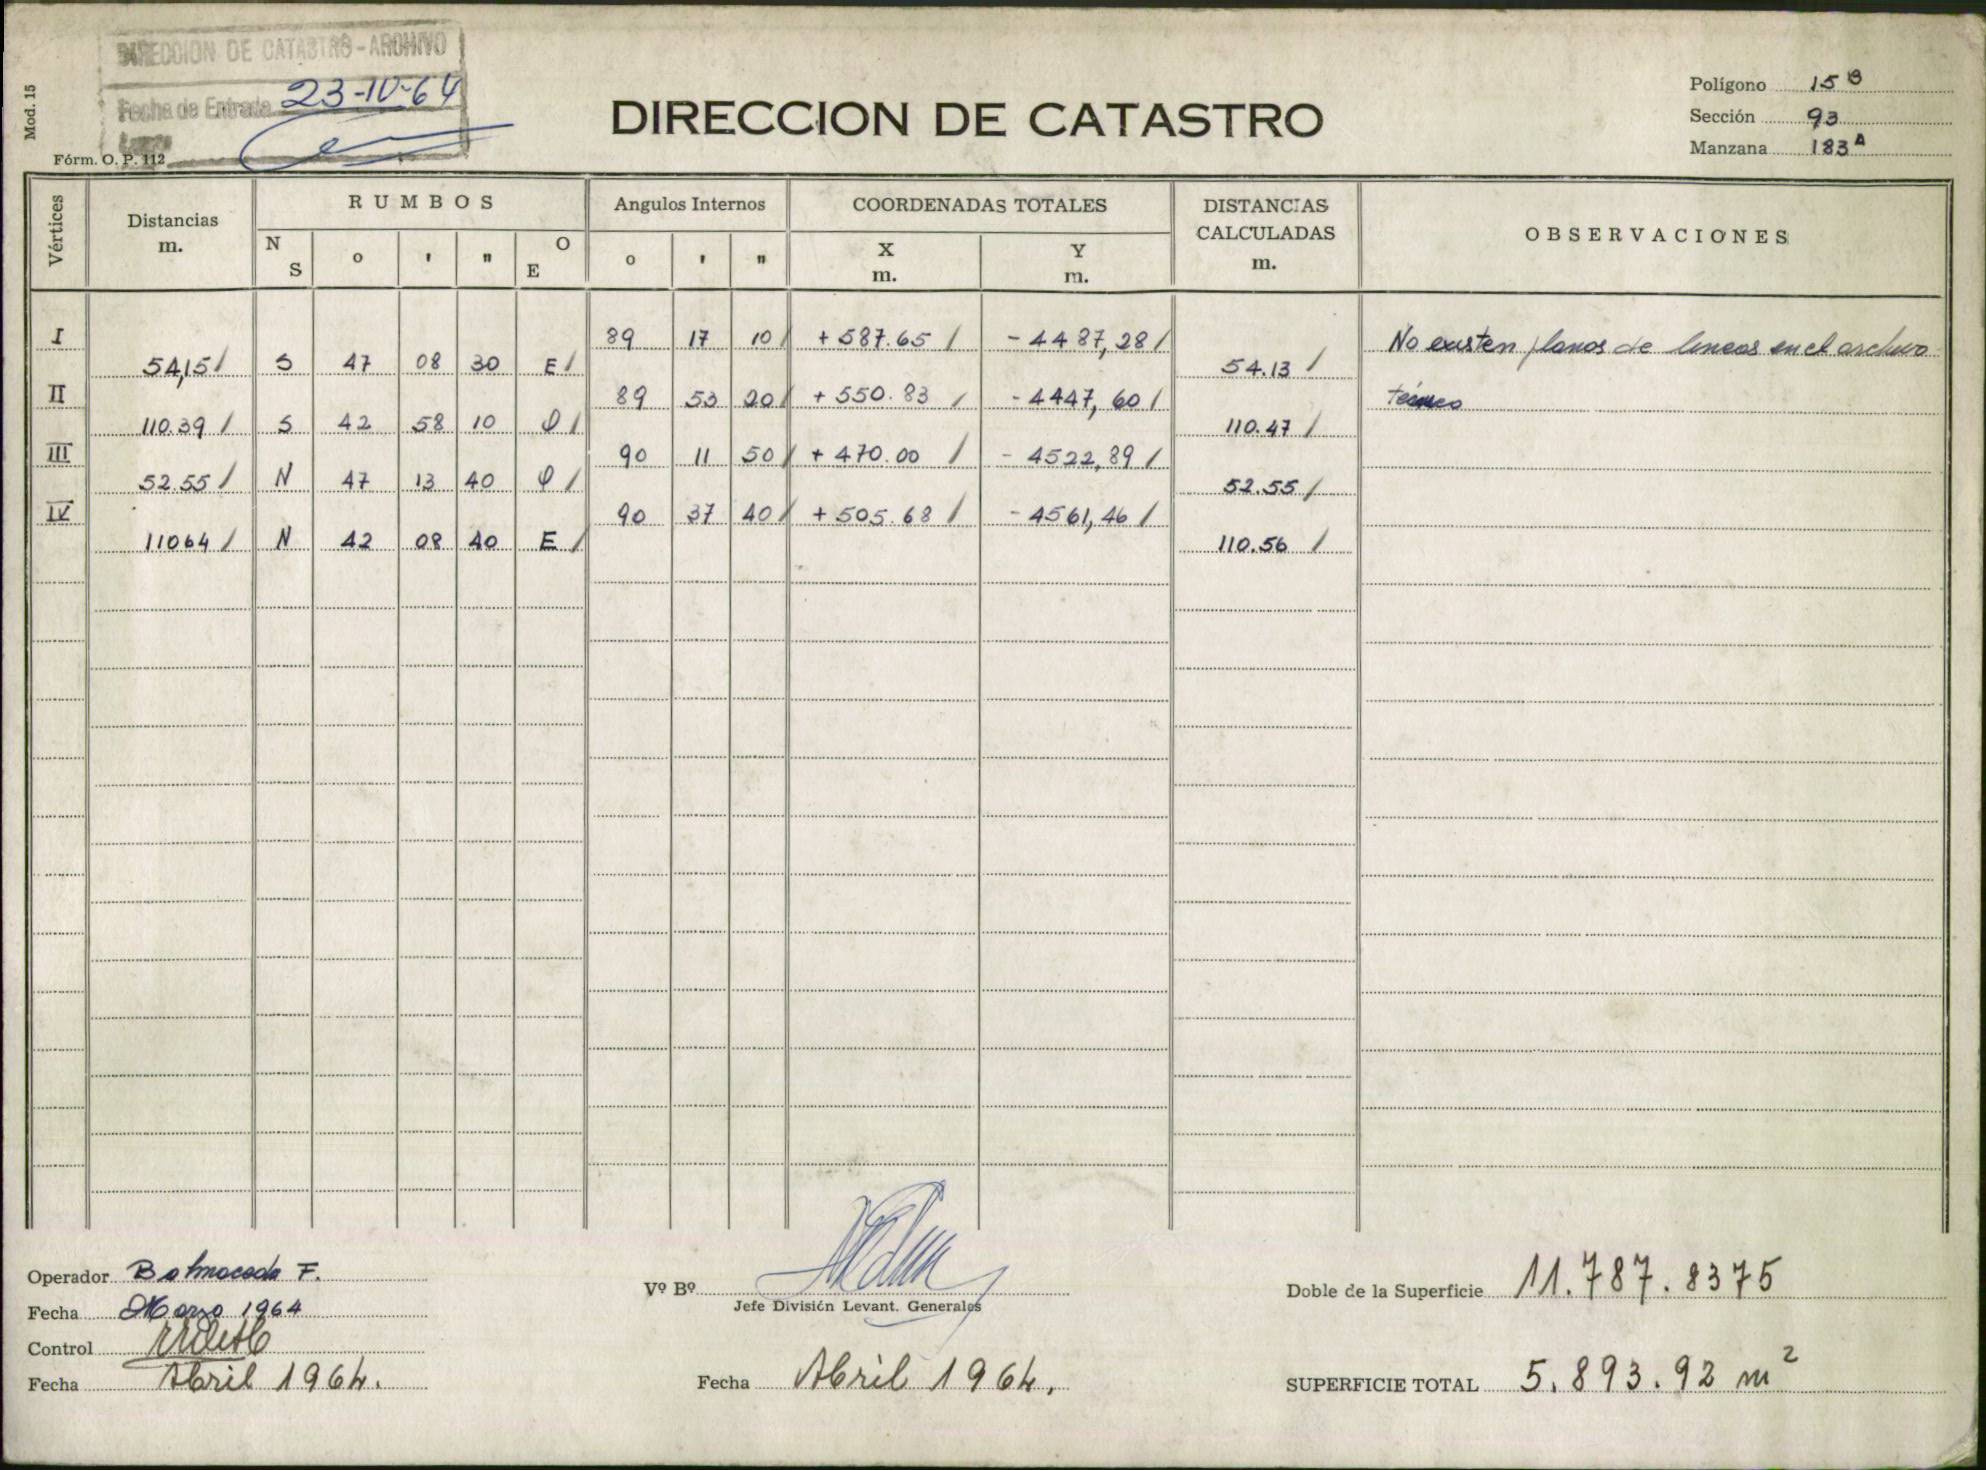 DIRECCION DE CATASTRO-ARCHIVO
Fecha de Entrada 23-10-64
Mod. 15
Fórm. O. P. 112
DIRECCION DE CATASTRO
Polígono 15 B
Sección 93
Manzana 183 A
Vértices
Distancias
m.
RUMBOS
N S ° ' " O E
Angulos Internos
° ' "
COORDENADAS TOTALES
X
m.
Y
m.
DISTANCIAS
CALCULADAS
m.
OBSERVACIONES
I 89 17 10 / + 587.65 / - 4487,28 / No existen planos de lineas en el archivo
54,15 / S 47 08 30 E / 54.13 /
II 89 53 20 / + 550.83 / - 4447,60 / técnico
110.39 / S 42 58 10 O / 110.47 /
III 90 11 50 / + 470.00 / - 4522,89 /
52.55 / N 47 13 40 O / 52.55 /
IV 90 37 40 / + 505.68 / - 4561,46 /
11064 / N 42 08 40 E / 110.56 /
Operador Balmaceda F.
Fecha Marzo 1964
Control
Fecha Abril 1964.
Vº Bº
Jefe División Levant. Generales
Fecha Abril 1964.
Doble de la Superficie 11.787.8375
SUPERFICIE TOTAL 5.893.92 m²